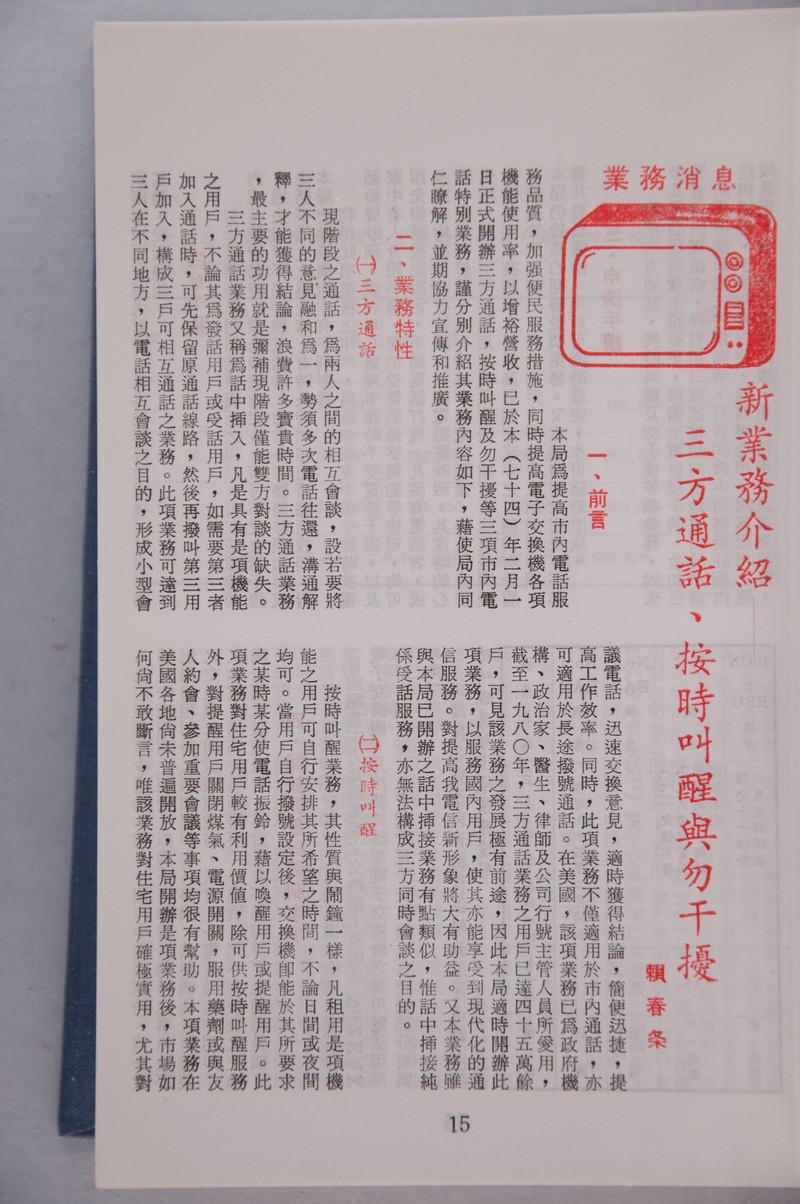 業務消息
新業務介紹
三方通話、按時叫醒與勿干擾
賴春条
一、前言
本局爲提高市內電話服
務品質，加强便民服務措施，同時提高電子交換機各項
機能使用率，以增裕營收，已於本（七十四）年二月一
日正式開辦三方通話，按時叫醒及勿干擾等三項市內電
話特別業務，謹分別介紹其業務內容如下，藉使局內同
仁瞭解，並期協力宣傳和推廣。
二、業務特性
㈠三方通話
現階段之通話，爲兩人之間的相互會談，設若要將
三人不同的意見融和爲一，勢須多次電話往還，溝通解
釋，才能獲得結論，浪費許多寶貴時間。三方通話業務
，最主要的功用就是彌補現階段僅能雙方對談的缺失。
三方通話業務又稱爲話中揷入，凡是具有是項機能
之用戶，不論其爲發話用戶或受話用戶，如需要第三者
加入通話時，可先保留原通話線路，然後再撥叫第三用
戶加入，構成三戶可相互通話之業務。此項業務可達到
三人在不同地方，以電話相互會談之目的，形成小型會
議電話，迅速交換意見，適時獲得結論，簡便迅捷，提
高工作效率。同時，此項業務不僅適用於市內通話，亦
可適用於長途撥號通話。在美國，該項業務已爲政府機
構、政治家、醫生、律師及公司行號主管人員所愛用，
截至一九八〇年，三方通話業務之用戶已達四十五萬餘
戶，可見該業務之發展極有前途，因此本局適時開辦此
項業務，以服務國內用戶，使其亦能享受到現代化的通
信服務。對提高我電信新形象將大有助益。又本業務雖
與本局已開辦之話中揷接業務有點類似，惟話中揷接純
係受話服務，亦無法構成三方同時會談之目的。
㈡按時叫醒
按時叫醒業務，其性質與鬧鐘一樣，凡租用是項機
能之用戶可自行安排其所希望之時間，不論日間或夜間
均可。當用戶自行撥號設定後，交換機卽能於其所要求
之某時某分使電話振鈴，藉以喚醒用戶或提醒用戶。此
項業務對住宅用戶較有利用價值，除可供按時叫醒服務
外，對提醒用戶關閉煤氣、電源開關，服用藥劑或與友
人約會、參加重要會議等事項均很有幫助。本項業務在
美國各地尙未普遍開放，本局開辦是項業務後，市場如
何尙不敢斷言，唯該業務對住宅用戶確極實用，尤其對
15